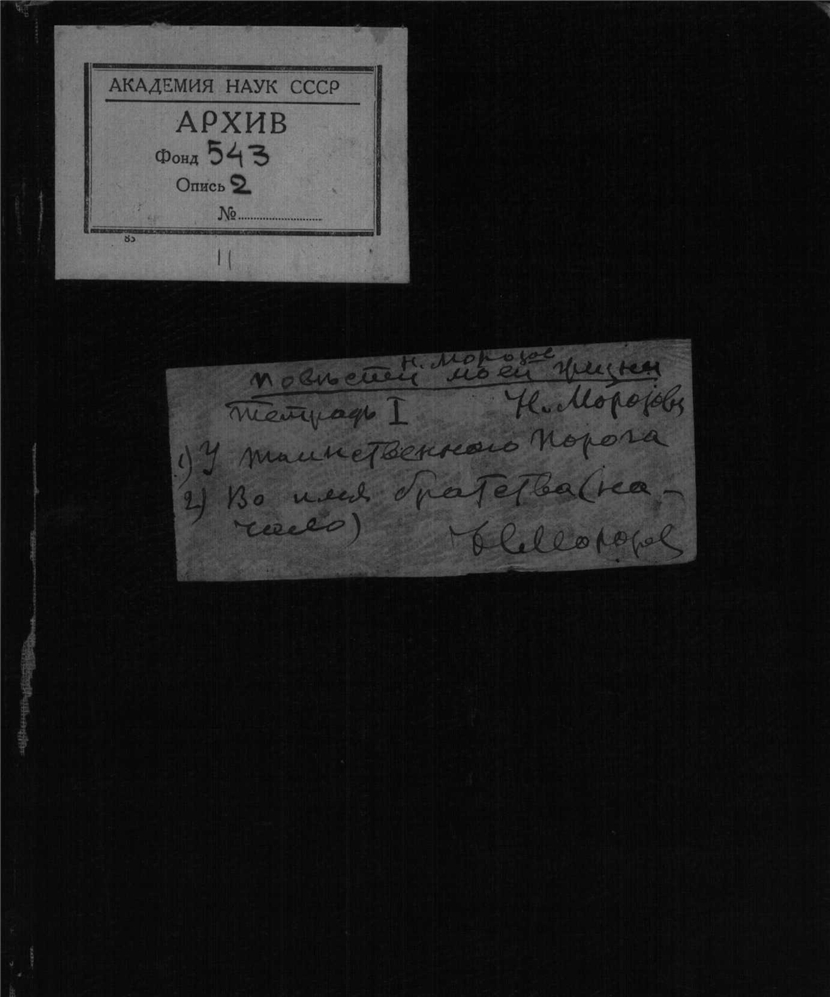 АКАДЕМИЯ НАУК СССР
АРХИВ
Фонд 543
Опись 2
№
83
11
Н. Морозов
Повѣстей моей жизни
Тетрадь I Н. Морозовъ
1) У таинственного порога
2) Во имя братства (на-
чало)
Н. Морозов